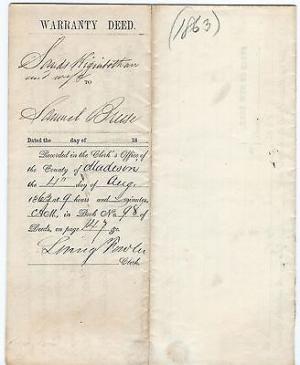 WARRANTY DEED.
Sands Higinbotham
and wife
TO
Samuel Breese
Dated the day of 18
Recorded in the Clerk's Office of
the County of Madison
the 4th day of Aug.
1863, at 9 hours and minutes
A.M., in Book No. 98 of
Deeds, on page 147 &c.
Clerk.
(1863)